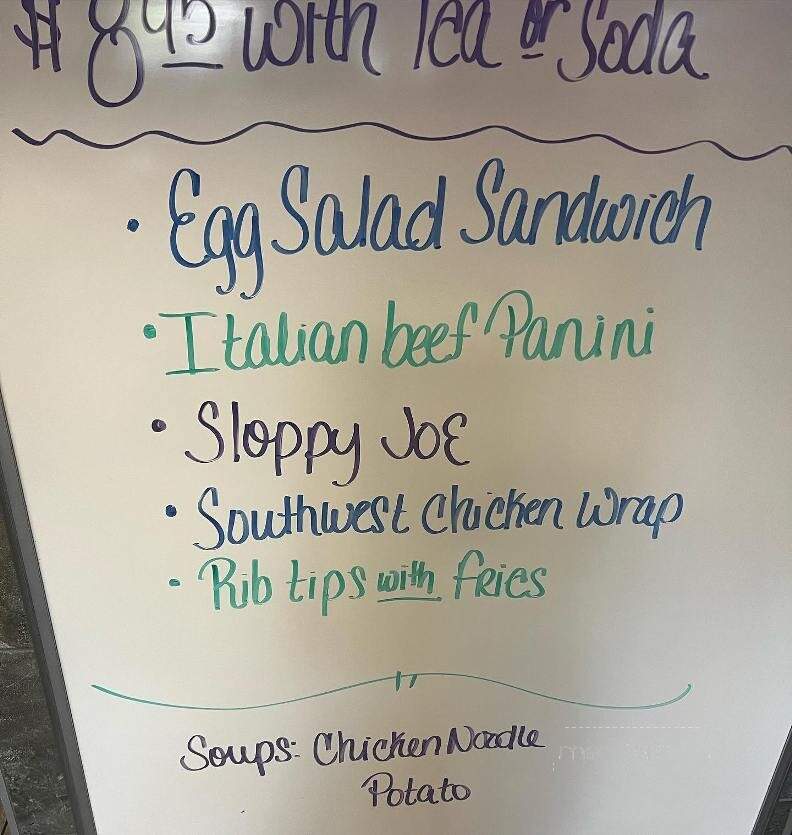 $8.95 with Tea or Soda
• Egg Salad Sandwich
• Italian beef Panini
• Sloppy Joe
• Southwest Chicken Wrap
• Rib tips with fries
Soups: Chicken Noodle
Potato